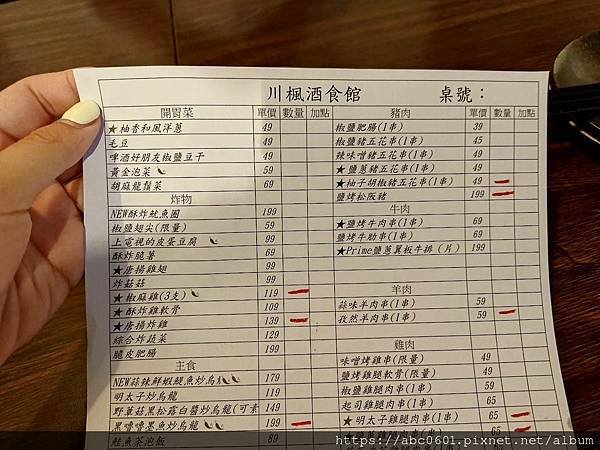 川楓酒食館 桌號：
開胃菜 單價 數量 加點
★柚香和風洋蔥 49
毛豆 49
啤酒好朋友椒鹽豆干 49
黃金泡菜 59
胡麻龍鬚菜 69
炸物
NEW酥炸魷魚圈 199
椒鹽翅尖(限量) 59
上電視的皮蛋豆腐 99
酥炸脆薯 69
★唐揚雞翅 99
炸菇菇 99
★椒麻雞(3支) 119
★酥炸雞軟骨 109
★唐揚炸雞 139
綜合炸蔬菜 199
脆皮肥腸 199
主食
NEW蒜辣鮮蝦鯷魚炒烏 179
明太子炒烏龍 119
野蕈菇黑松露白醬炒烏龍(可素 149
黑嚕嚕墨魚炒烏龍 199
鮭魚茶泡飯 89
豬肉 單價 數量 加點
椒鹽肥腸(1串) 39
椒鹽豬五花串(1串) 45
辣味噌豬五花串(1串) 49
★鹽蔥豬五花串(1串) 49
★柚子胡椒豬五花串(1串) 49
鹽烤松阪豬 199
牛肉
★鹽烤牛肉串(1串) 69
鹽烤牛肋串(1串) 69
★Prime鹽蔥翼板牛排（片） 199
羊肉
蒜味羊肉串(1串) 59
孜然羊肉串(1串) 59
雞肉
味噌烤雞串(限量) 49
鹽烤雞腿軟骨(限量) 49
椒鹽雞腿肉串(1串) 59
起司雞腿肉串(1串) 65
★明太子雞腿肉串(1串) 65
65
https://abc0601.pixnet.net/album